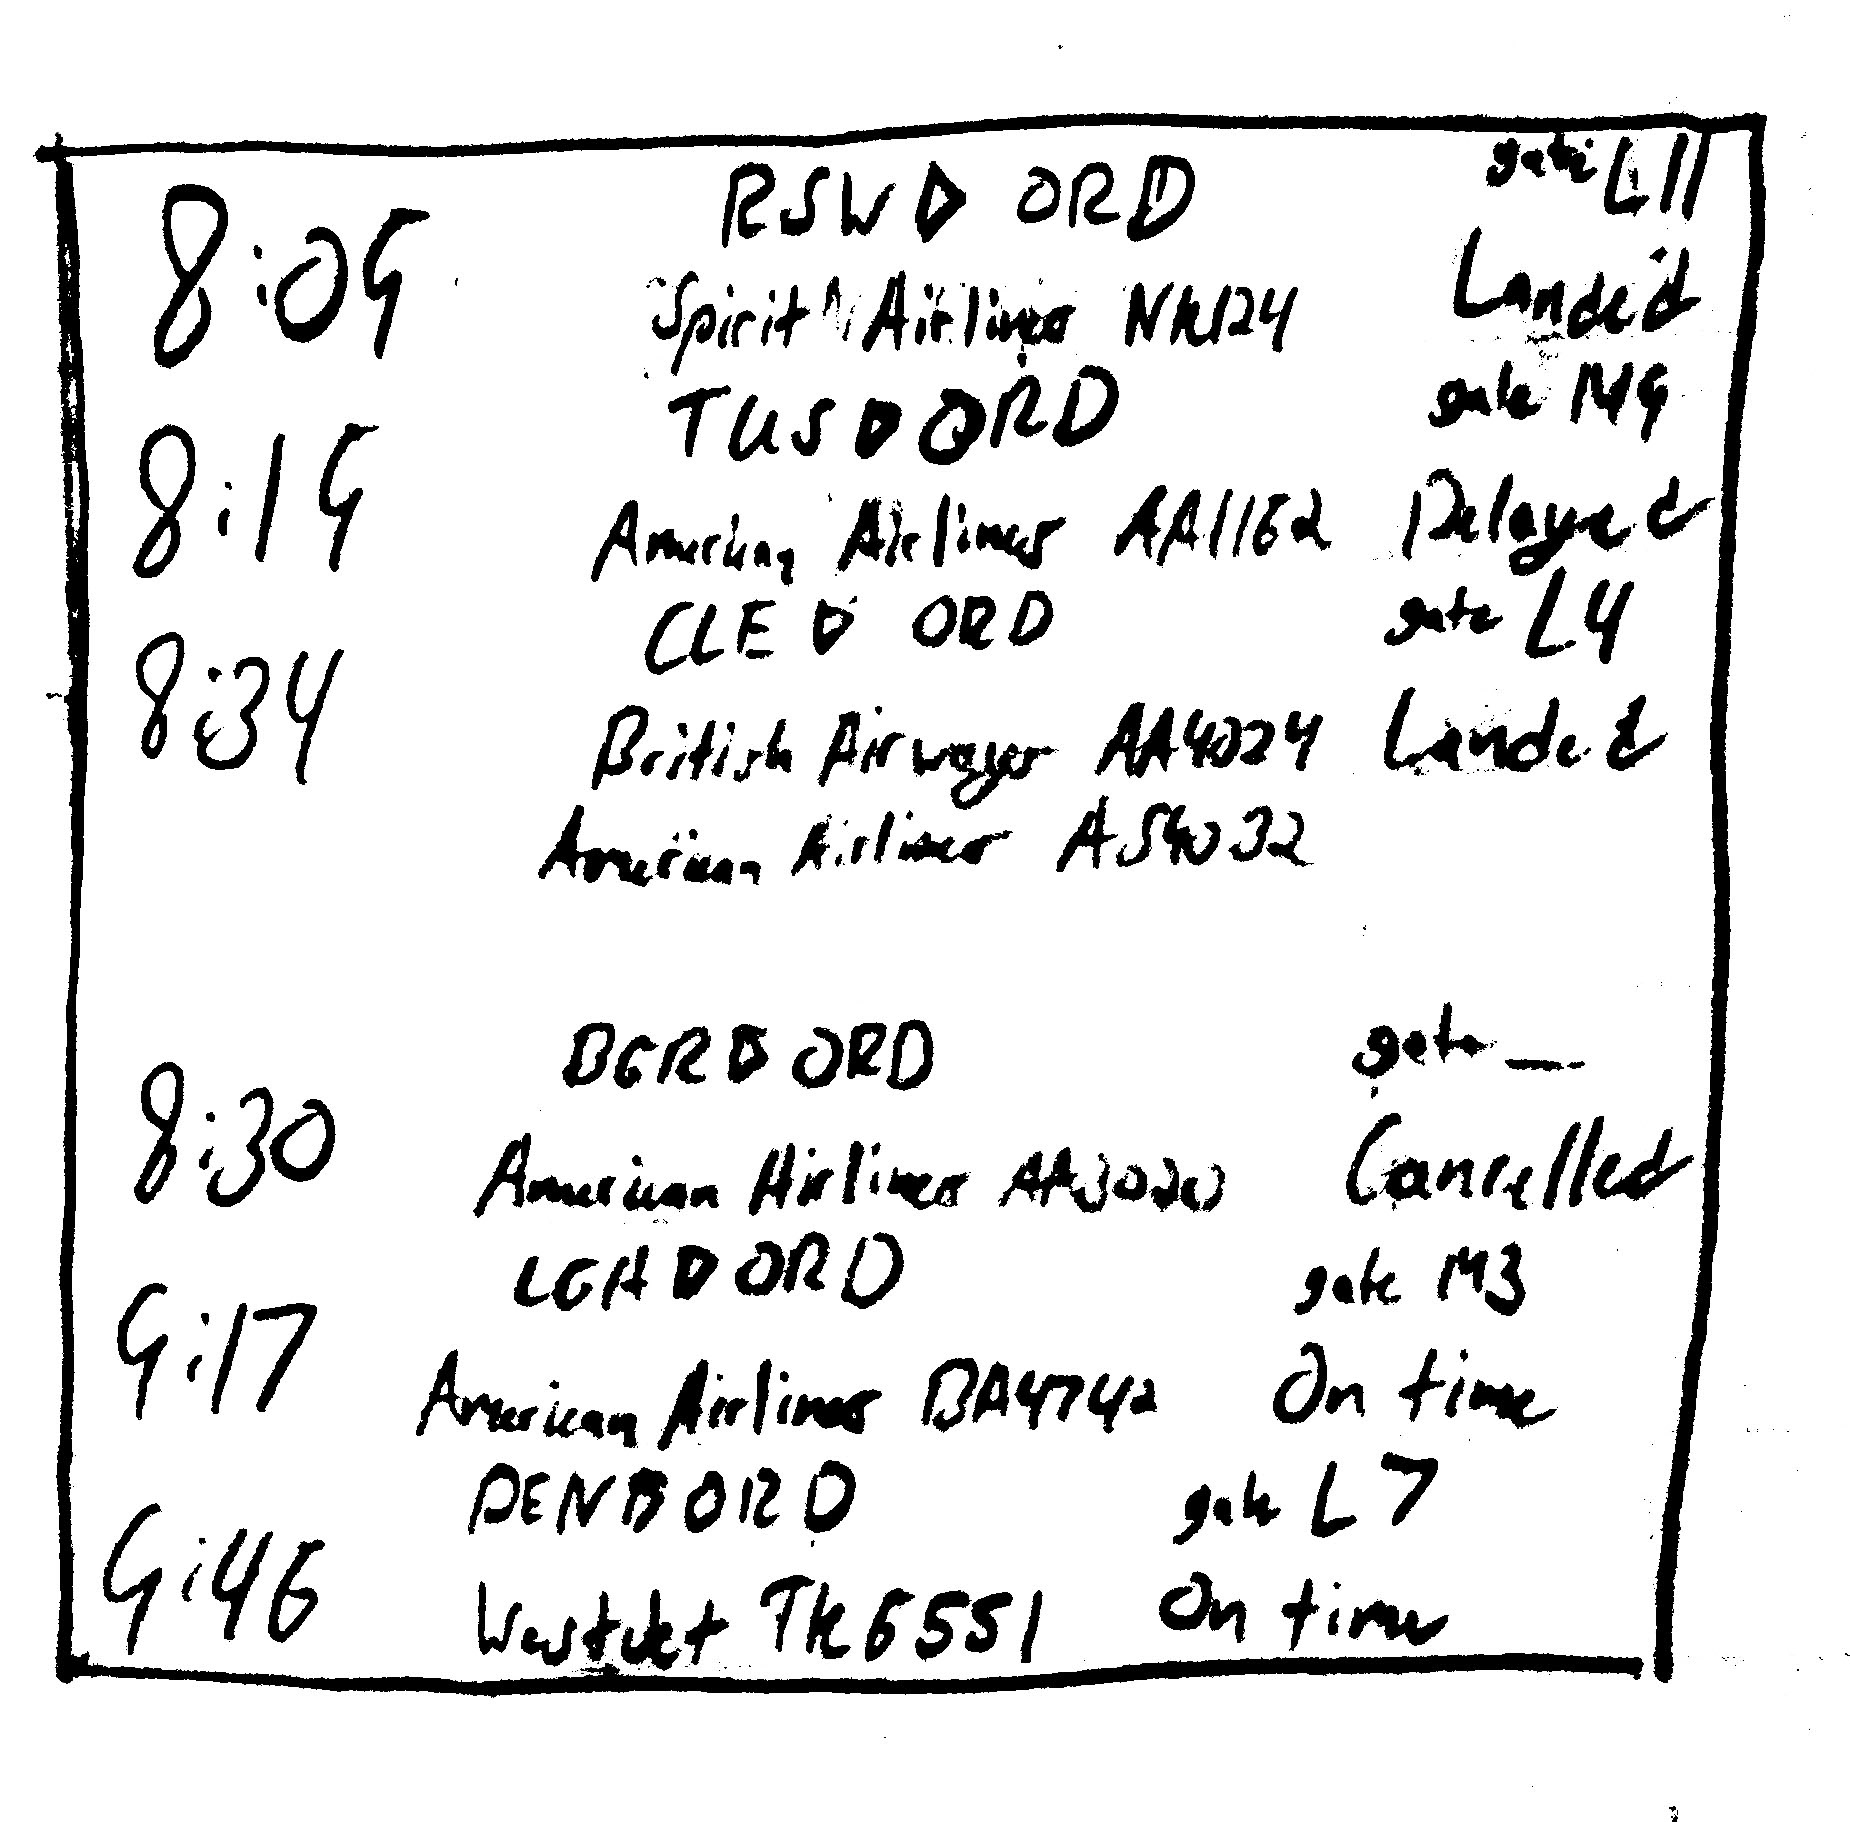 8:09 RSW ▷ ORD gate L11
Spirit Airlines NK124 Landed
8:19 TUS ▷ ORD gate M9
American Airlines AA1162 Delayed
8:34 CLE ▷ ORD gate L4
British Airways AA4024 Landed
American Airlines AS4032
8:30 BGR ▷ ORD gate —
American Airlines AA3020 Cancelled
9:17 LGA ▷ ORD gate M3
American Airlines BA4742 On time
9:46 DEN ▷ ORD gate L7
WestJet TK6551 On time